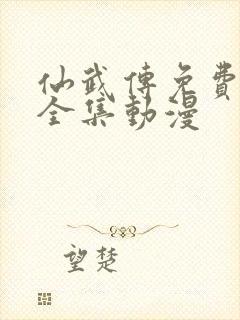 仙武傳免費
全集動漫
望楚